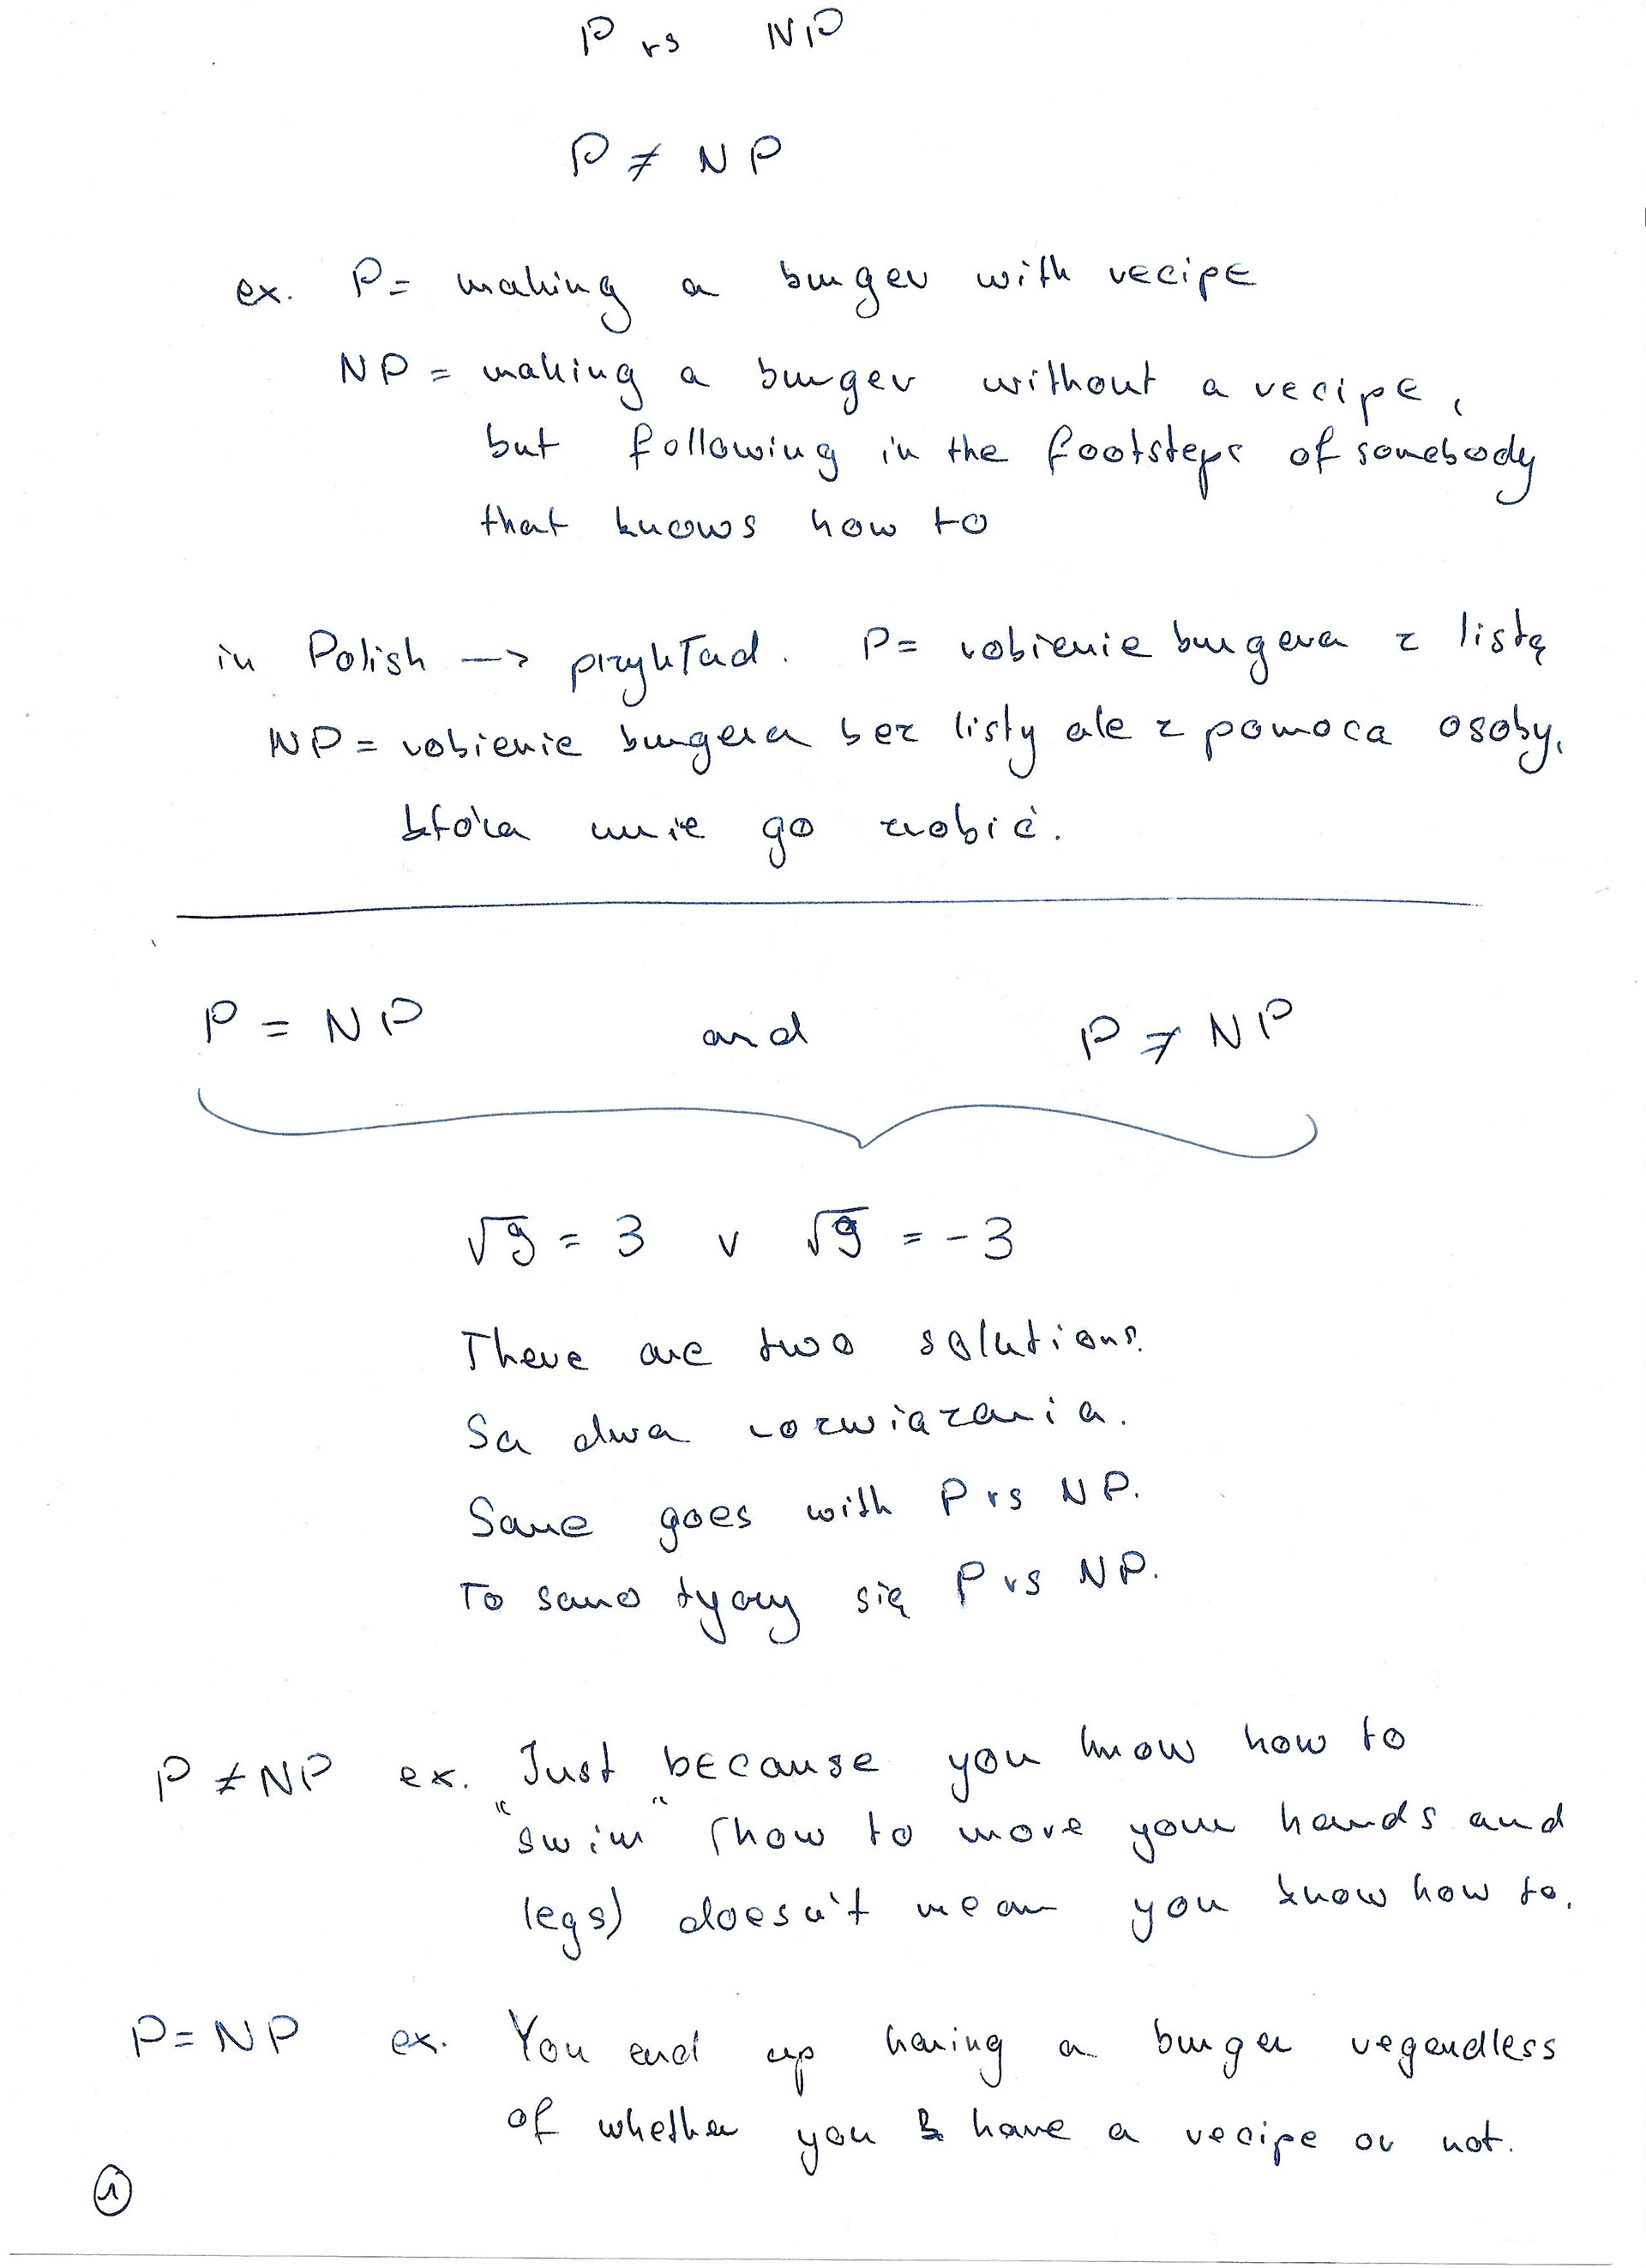 P vs NP
P ≠ NP
ex. P = making a burger with recipe
NP = making a burger without a recipe,
but following in the footsteps of somebody
that knows how to
in Polish —> przykład. P = robienie burgera z listą
NP = robienie burgera bez listy ale z pomoca osoby,
która umie go zrobić.
P = NP and P ≠ NP
√9 = 3 v √9 = -3
There are two solutions.
Sa dwa rozwiązania.
Same goes with P vs NP.
To samo tyczy się P vs NP.
P ≠ NP ex. Just because you know how to
"swim" (how to move your hands and
legs) doesn't mean you know how to.
P = NP ex. You end up having a burger regardless
of whether you have a recipe or not.
1